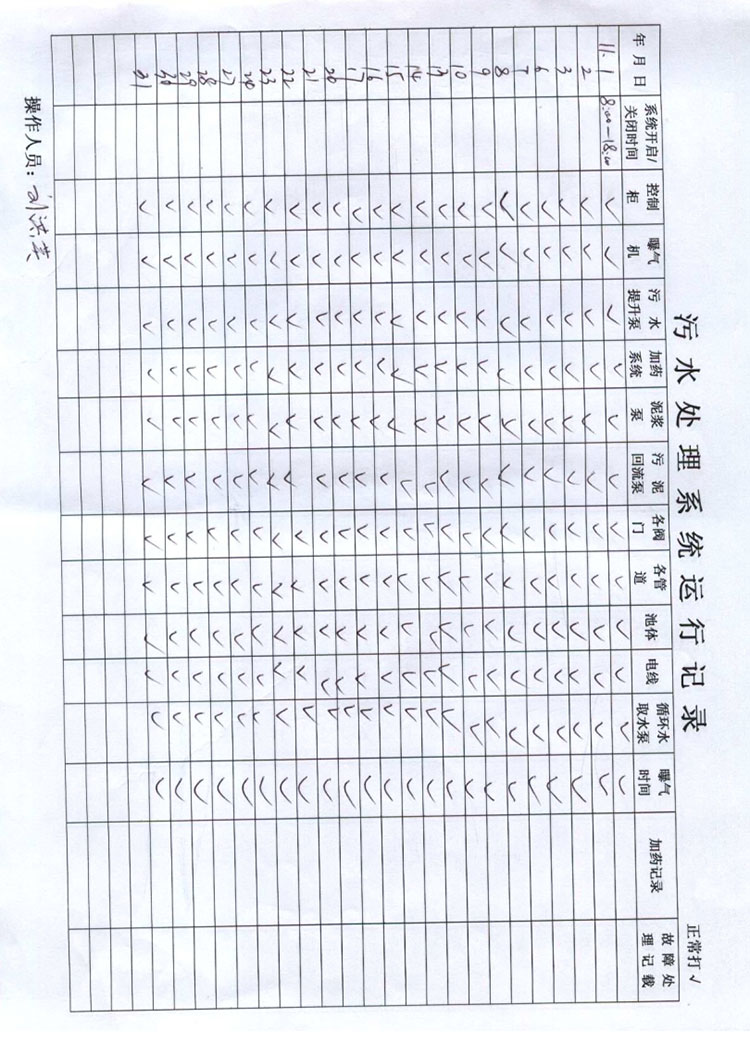 污水处理系统运行记录
正常打√
年 月 日 系统开启/关闭时间 控制柜 曝气机 污水提升泵 加药系统 泥浆泵 污泥回流泵 各阀门 各管道 池体 电线 循环水取水泵 曝气时间 加药记录 故障处理记载
11.1 8:00-18:00 √ √ √ √ √ √ √ √ √ √ √ √
2 √ √ √ √ √ √ √ √ √ √ √ √
3 √ √ √ √ √ √ √ √ √ √ √ √
6 √ √ √ √ √ √ √ √ √ √ √ √
7 √ √ √ √ √ √ √ √ √ √ √ √
8 √ √ √ √ √ √ √ √ √ √ √ √
9 √ √ √ √ √ √ √ √ √ √ √ √
10 √ √ √ √ √ √ √ √ √ √ √ √
13 √ √ √ √ √ √ √ √ √ √ √ √
14 √ √ √ √ √ √ √ √ √ √ √ √
15 √ √ √ √ √ √ √ √ √ √ √ √
16 √ √ √ √ √ √ √ √ √ √ √ √
17 √ √ √ √ √ √ √ √ √ √ √ √
20 √ √ √ √ √ √ √ √ √ √ √ √
21 √ √ √ √ √ √ √ √ √ √ √ √
22 √ √ √ √ √ √ √ √ √ √ √ √
23 √ √ √ √ √ √ √ √ √ √ √ √
24 √ √ √ √ √ √ √ √ √ √ √ √
27 √ √ √ √ √ √ √ √ √ √ √ √
28 √ √ √ √ √ √ √ √ √ √ √ √
29 √ √ √ √ √ √ √ √ √ √ √ √
30 √ √ √ √ √ √ √ √ √ √ √ √
31 √ √ √ √ √ √ √ √ √ √ √ √
操作人员：刘洪